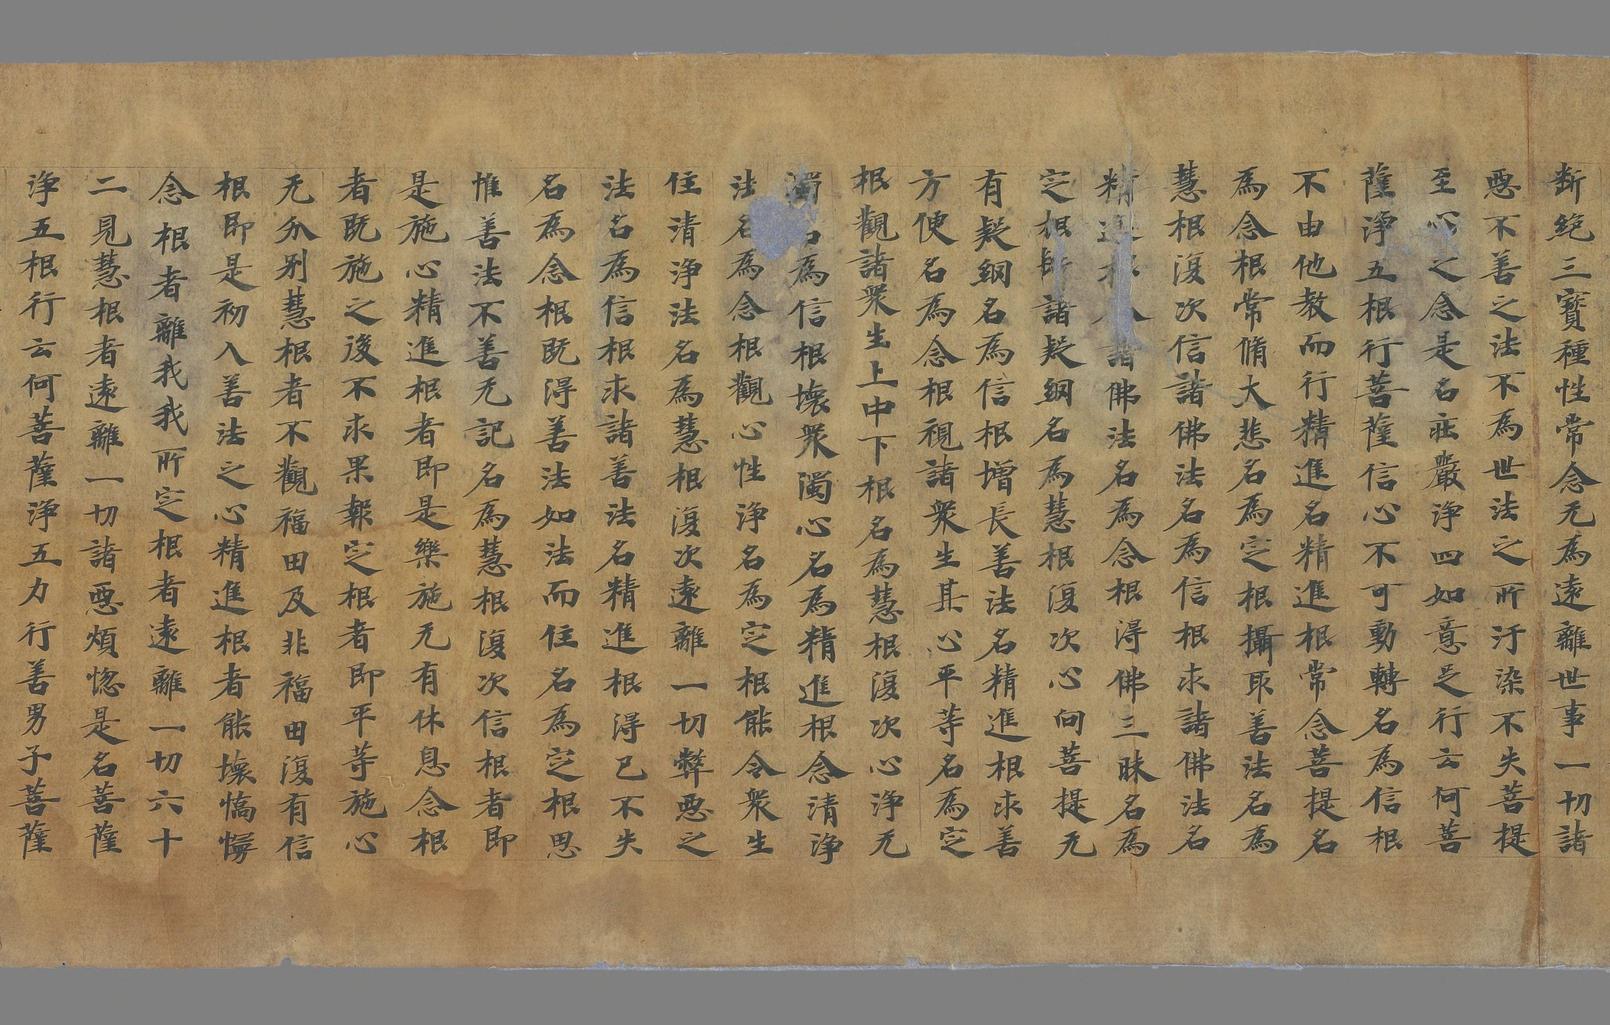 断絶三寳種性常念无為遠離世事一切諸
悪不善之法不為世法之所汙染不失菩提
至心之念是名莊嚴浄四如意足行云何菩
薩浄五根行菩薩信心不可動轉名為信根
不由他教而行精進名精進根常念菩提名
為念根常脩大悲名為定根攝取善法名為
慧根復次信諸佛法名為信根求諸佛法名
精進根 諸佛法名為念根得佛三昧名為
定根斷諸疑網名為慧根復次心向菩提无
有疑網名為信根增長善法名精進根求善
方便名為念根視諸衆生其心平等名為定
根觀諸衆生上中下根名為慧根復次心浄无
濁名為信根壞衆濁心名為精進根念清浄
法名為念根觀心性浄名為定根能令衆生
住清浄法名為慧根復次遠離一切弊悪之
法名為信根求諸善法名精進根得已不失
名為念根既得善法如法而住名為定根思
惟善法不善无記名為慧根復次信根者即
是施心精進根者即是樂施无有休息念根
者既施之後不求果報定根者即平等施心
无分别慧根者不觀福田及非福田復有信
根即是初入善法之心精進根者能壞憍慢
念根者離我我所定根者遠離一切六十
二見慧根者遠離一切諸悪煩惱是名菩薩
浄五根行云何菩薩浄五力行善男子菩薩